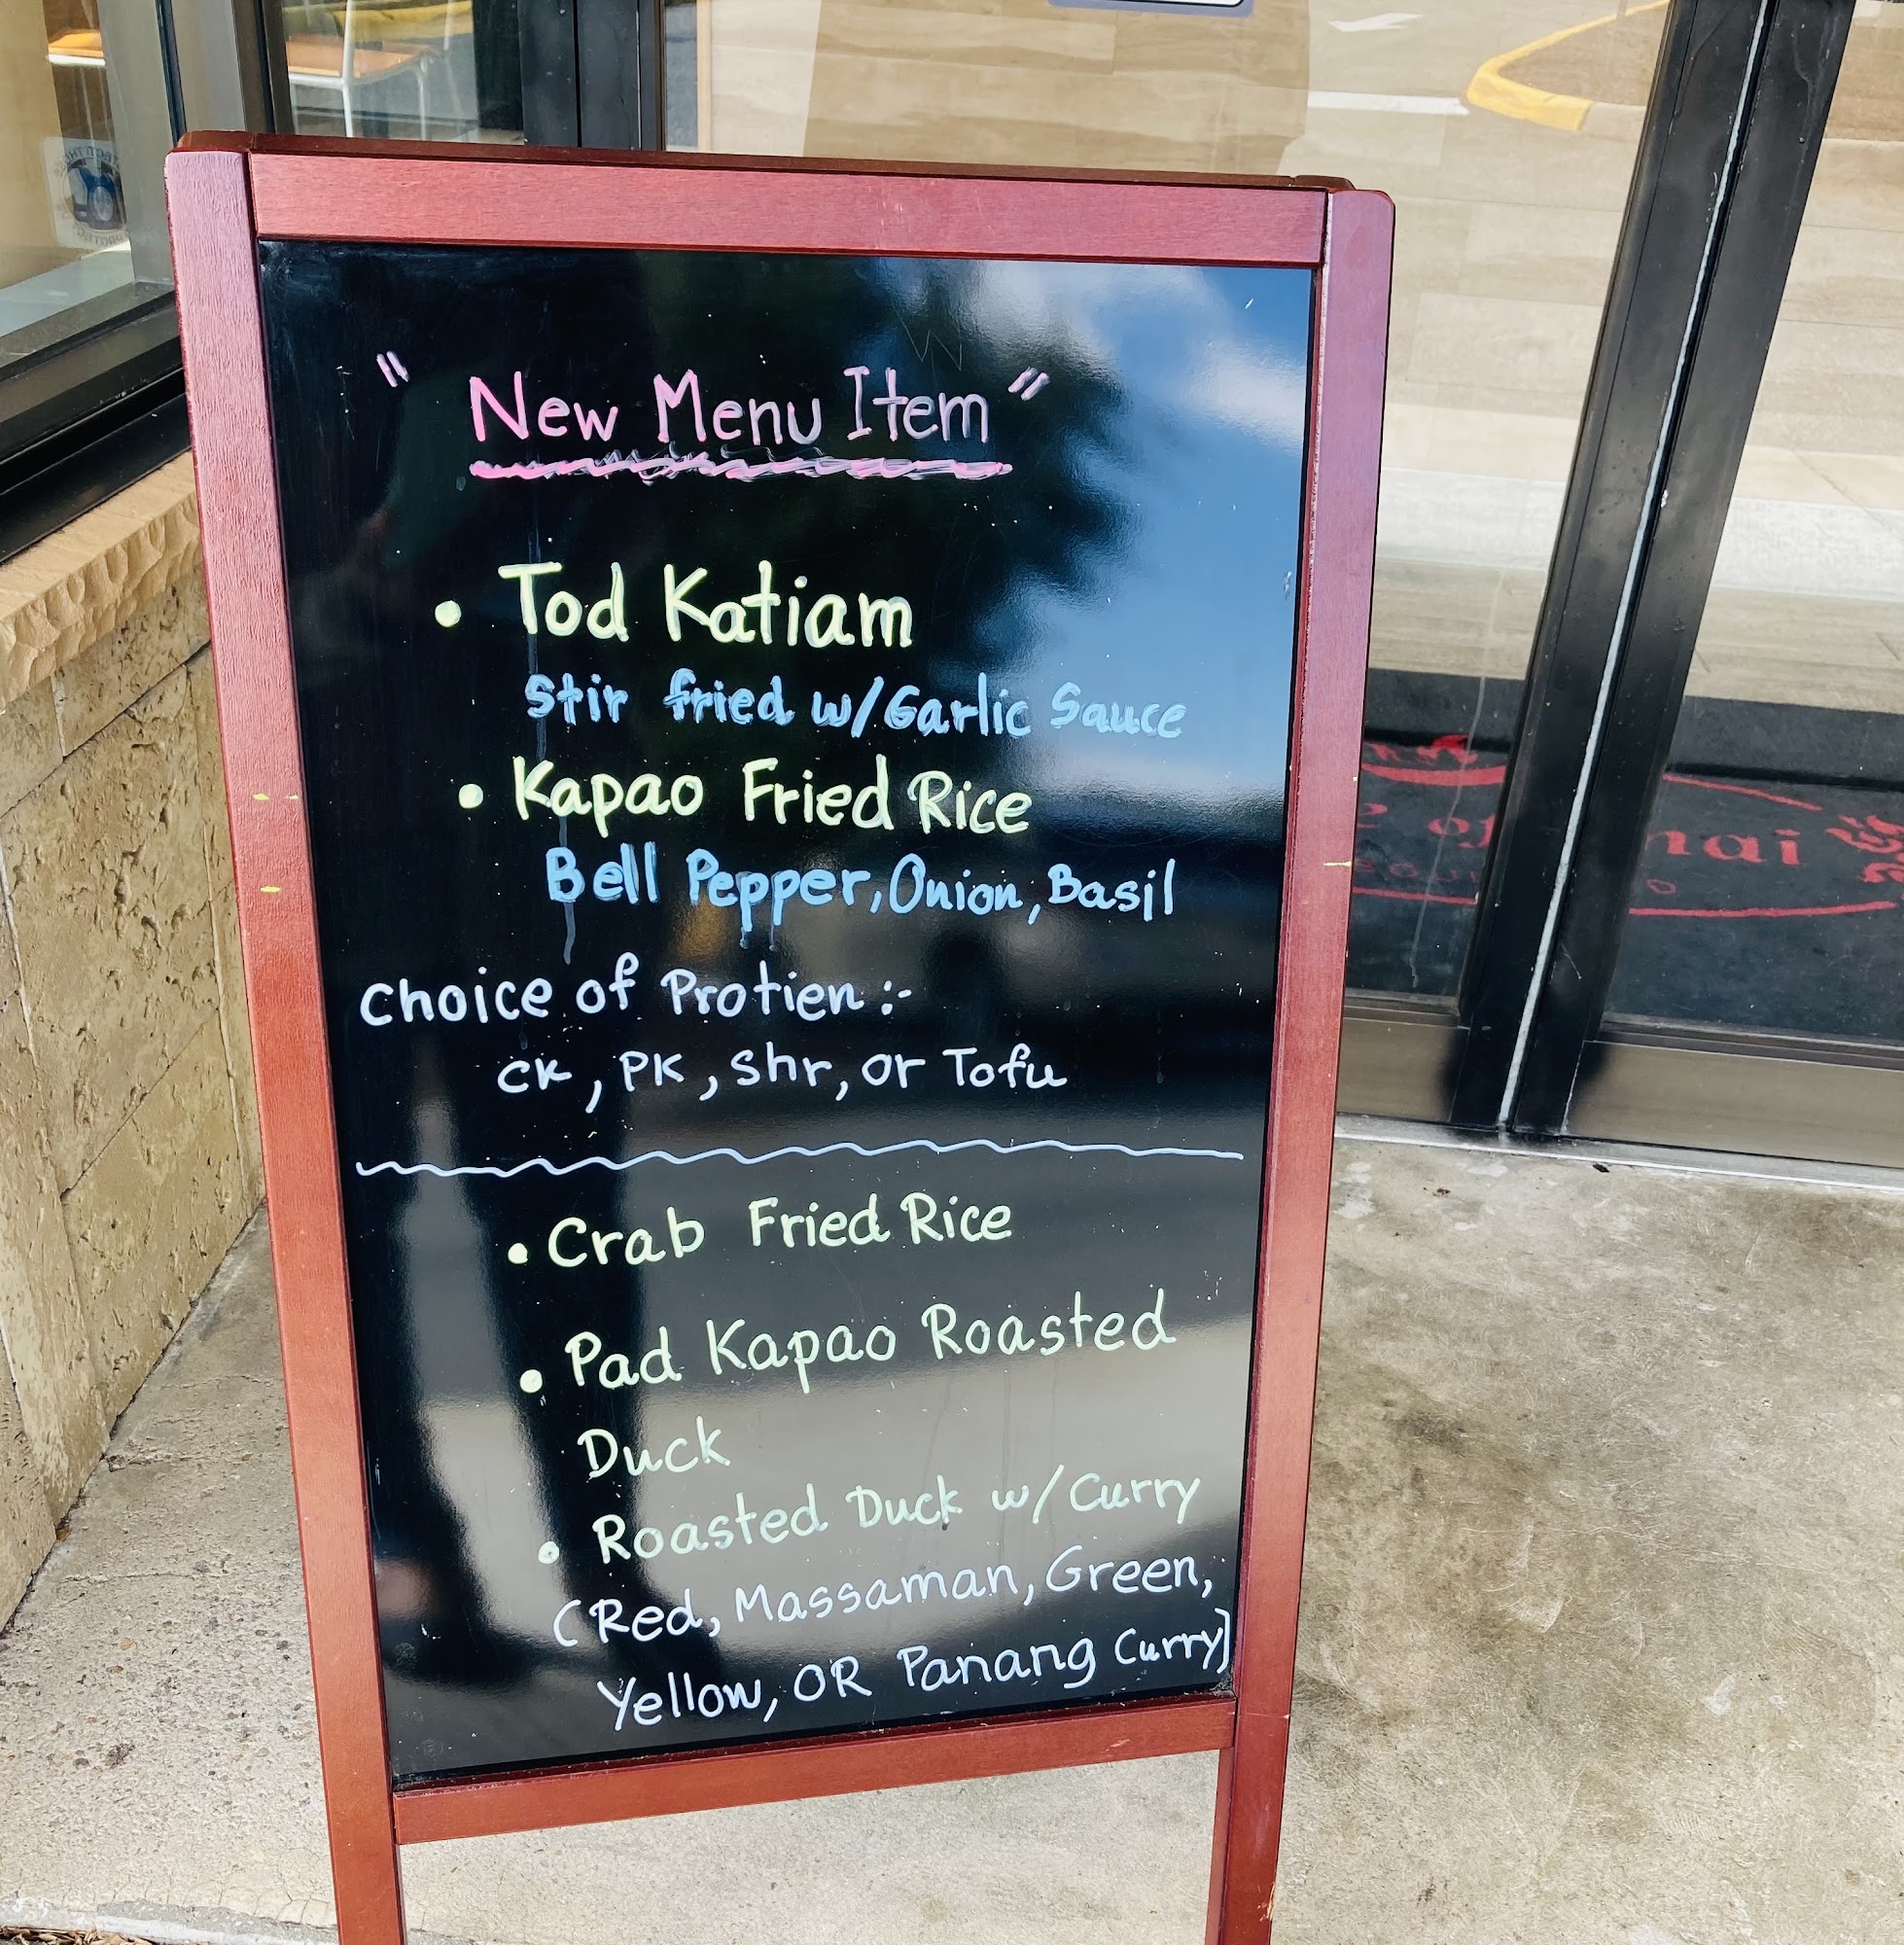 " New Menu Item "
• Tod Katiam
Stir fried w/Garlic Sauce
• Kapao Fried Rice
Bell Pepper, Onion, Basil
Choice of Protien :-
CK, PK, Shr, or Tofu
• Crab Fried Rice
• Pad Kapao Roasted
Duck
• Roasted Duck w/Curry
(Red, Massaman, Green,
Yellow, OR Panang Curry)
of